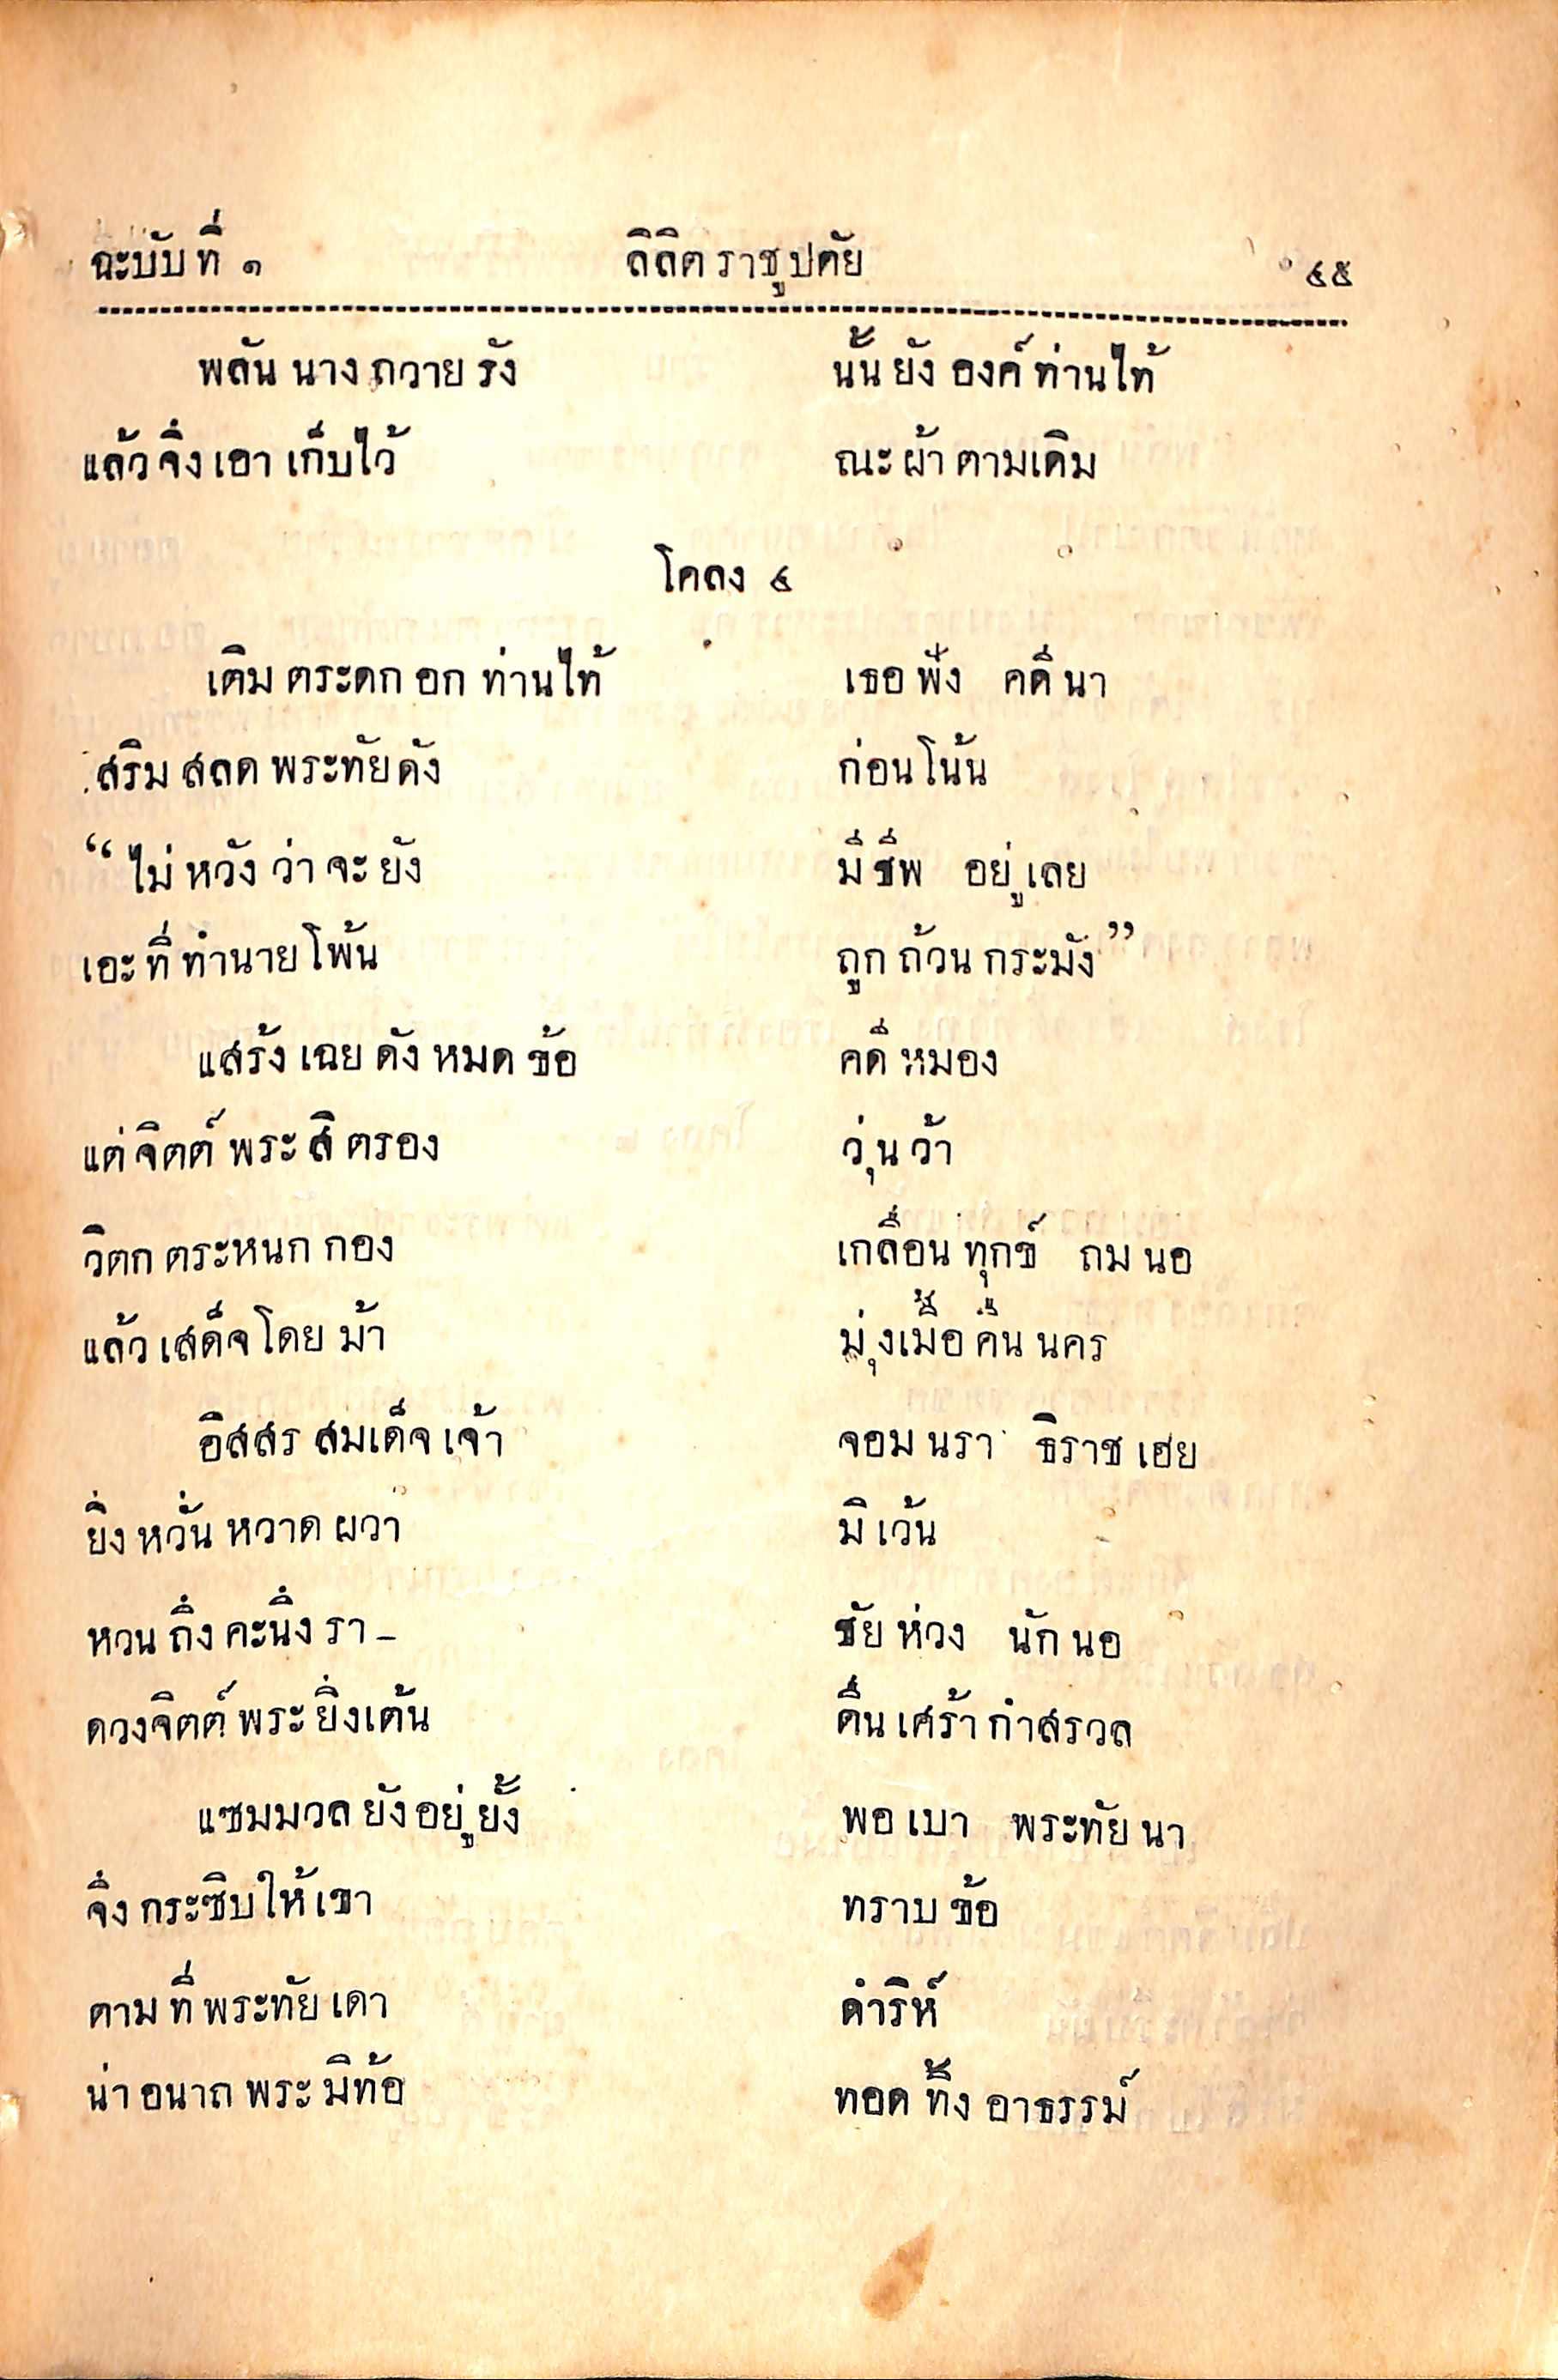 ฉะบับที่ ๑ ลิลิตราชูปตัย ๔๕
พลันนางถวายรัง นั้นยังองค์ท่านไท้
แล้วจึงเอาเก็บไว้ ณะผ้าตามเดิม
โคลง ๔
เดิมตระดกอกท่านไท้ เธอฟัง คดีนา
เสริมสลดพระทัยดัง ก่อนโน้น
“ไม่หวังว่าจะยัง มีชีพ อยู่เลย
เอะที่ทำนายโพ้น ถูกถ้วนกระมัง”
แสร้งเฉยดังหมดข้อ คดีหมอง
แต่จิตต์พระสิตรอง วุ่นว้า
วิตกตระหนกกอง เกลื่อนทุกข์ ถมนอ
แล้วเสด็จโดยม้า มุ่งเมื้อคืนนคร
อิสสรสมเด็จเจ้า จอมนรา ธิราชเฮย
ยิ่งหวั่นหวาดผวา มิเว้น
หวนถึงคะนึงรา- ชัยห่วง นักนอ
ดวงจิตต์พระยิ่งเต้น ตื่นเศร้ากำสรวล
แซมมวลยังอยู่ยั้ง พอเบา พระทัยนา
จึ่งกระซิบให้เขา ทราบข้อ
ตามที่พระทัยเดา ดำริห์
น่าอนาถพระมิท้อ ทอดทิ้งอาธรรม์